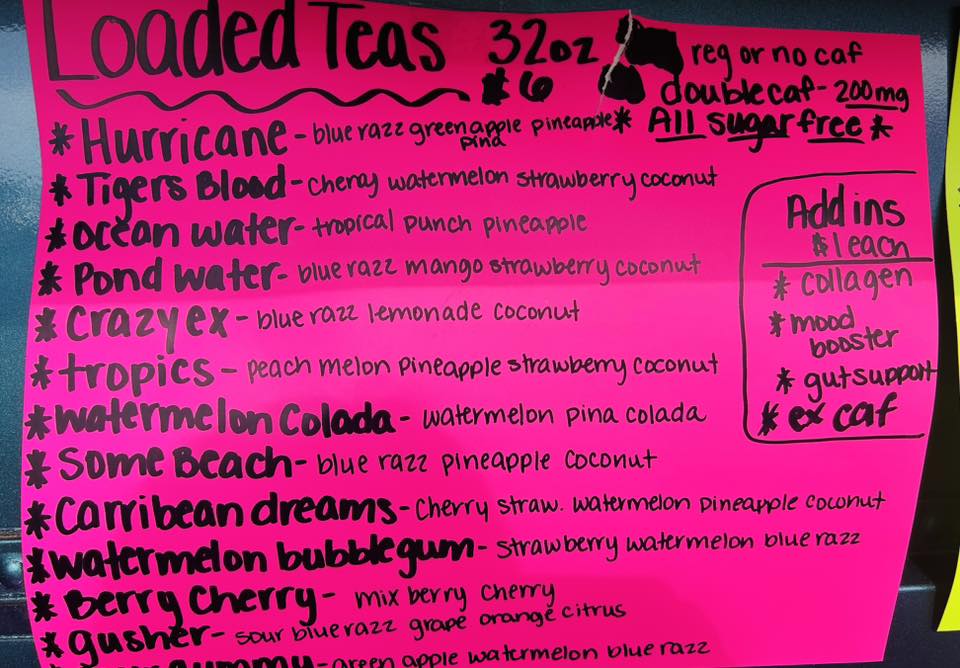 Loaded Teas 32oz
$6
reg or no caf
double caf - 200mg
* All sugar free *
* Hurricane - blue razz green apple pineapple
pina
* Tigers Blood - cherry watermelon strawberry coconut
* ocean water - tropical punch pineapple
* Pond water - blue razz mango strawberry coconut
* crazy ex - blue razz lemonade coconut
* tropics - peach melon pineapple strawberry coconut
* watermelon Colada - watermelon pina colada
* Some Beach - blue razz pineapple coconut
* Carribean dreams - cherry straw. watermelon pineapple coconut
* watermelon bubblegum - strawberry watermelon blue razz
* Berry Cherry - mix berry cherry
* gusher - sour blue razz grape orange citrus
- green apple watermelon blue razz
Add ins
$1 each
* collagen
* mood
booster
* gut support
* ex caf